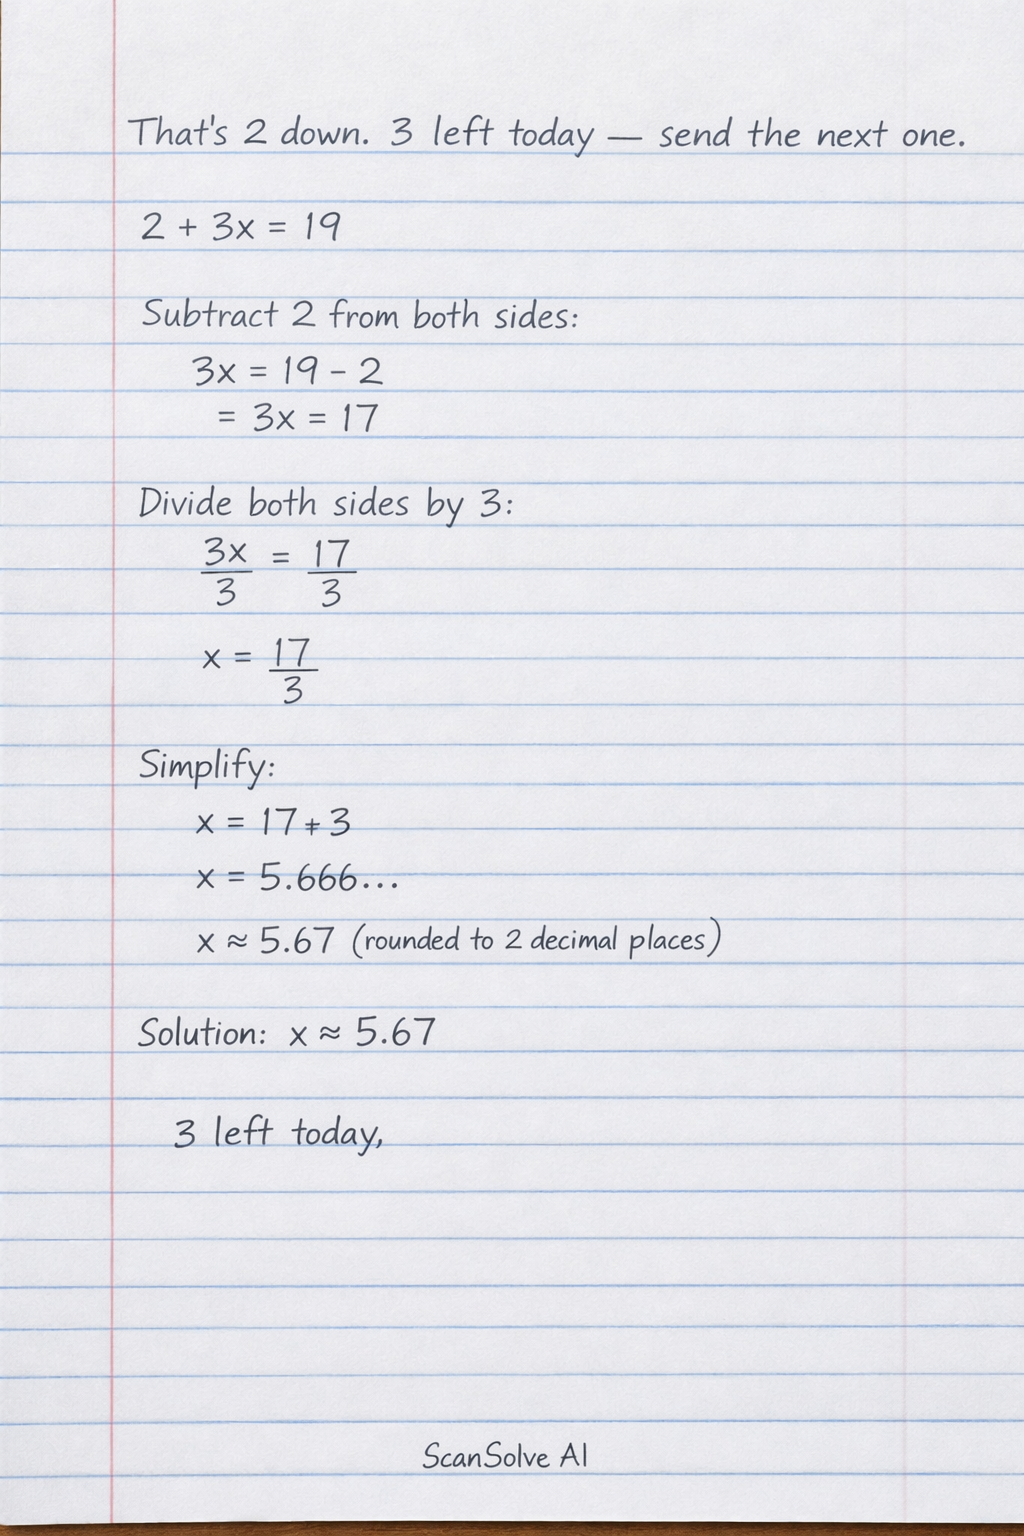 That's 2 down. 3 left today — send the next one.
2 + 3x = 19
Subtract 2 from both sides:
3x = 19 - 2
= 3x = 17
Divide both sides by 3:
3x/3 = 17/3
x = 17/3
Simplify:
x = 17 + 3
x = 5.666...
x ≈ 5.67 (rounded to 2 decimal places)
Solution: x ≈ 5.67
3 left today,
ScanSolve AI